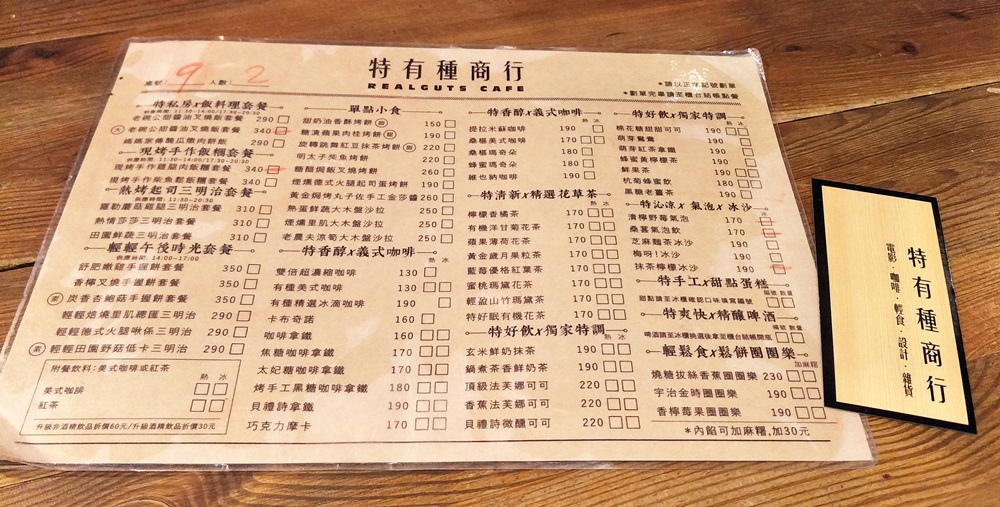 特有種商行
REALGUTS CAFE
桌號: 9 人數: 2
*請以正字記號劃單
*劃單完畢請至櫃台結帳點餐
特私房x飯料理套餐
供應時間: 11:30-14:00/17:30-20:30
老碗公甜醬油叉燒飯套餐 290
大 老碗公甜醬油叉燒飯套餐 340
媽媽家傳醃瓜燉肉餅飽 290
現烤手作飯糰套餐
供應時間: 11:30-14:00/17:30-20:30
現烤手作雞腿肉飯糰套餐 340
現烤手作柴魚鬆飯糰套餐 340
熱烤起司三明治套餐
供應時間: 11:30-20:30
羅勒蘑菇雞腿三明治套餐 310
熱情莎莎三明治套餐 310
田園鮮蔬三明治套餐 310
輕輕午後時光套餐
供應時間: 14:00-17:00
舒肥嫩雞手握餅套餐 350
香檸叉燒手握餅套餐 350
素 炭香杏鮑菇手握餅套餐 350
輕輕焙燒里肌總匯三明治 290
輕輕德式火腿啾係三明治 290
素 輕輕田園野菇低卡三明治 290
附餐飲料: 美式咖啡或紅茶
熱 冰
美式咖啡
紅茶
升級非酒精飲品折價60元/升級酒精飲品折價30元
單點小食
甜奶油香酥烤餅 150
糖漬蘋果肉桂烤餅 190
旋轉跳舞紅豆抹茶烤餅 220
明太子柴魚烤餅 220
糖醋焗飯叉燒烤餅 260
煙燻德式火腿起司蛋烤餅 190
黃金焗烤丸子佐手工金莎醬 260
熱蛋鮮蔬大木盤沙拉 250
煙燻里肌大木盤沙拉 250
老農夫涼筍大木盤沙拉 250
特香醇x義式咖啡
熱 冰
雙倍超濃縮咖啡 130
有種美式咖啡 130
有種精選冰滴咖啡 190
卡布奇諾 160
咖啡拿鐵 160
焦糖咖啡拿鐵 170
太妃糖咖啡拿鐵 170
烤手工黑糖咖啡拿鐵 180
貝禮詩拿鐵 190
巧克力摩卡 170
特香醇x義式咖啡
熱 冰
提拉米蘇咖啡 190
桑椹美式咖啡 170
桑椹瑪奇朵 180
蜂蜜瑪奇朵 180
維也納咖啡 190
特清新x精選花草茶
熱 冰
檸檬香橘茶 170
有機洋甘菊花茶 170
蘋果薄荷花茶 170
黃金歲月果粒茶 170
藍莓優格紅葉茶 170
蜜桃瑪黛花茶 170
輕盈山竹瑪黛茶 170
特好眠有機花茶 170
特好飲x獨家特調
熱 冰
玄米鮮奶抹茶 190
鍋煮茶香鮮奶茶 190
頂級法芙娜可可 220
香蕉法芙娜可可 220
貝禮詩微醺可可 220
特好飲x獨家特調
熱 冰
棉花糖甜甜可可 190
萌芽鴛鴦 190
萌芽紅茶拿鐵 190
蜂蜜黃檸檬茶 190
鮮果茶 190
杭菊蜂蜜飲 180
黑糖老薑茶 190
特沁涼x氣泡x冰沙
冰
清檸野莓氣泡 170
桑葚氣泡飲 170
芝麻麵茶冰沙 190
梅呀!冰沙 190
抹茶檸檬冰沙 190
特手工x甜點蛋糕
編號 數量
甜點請至冰櫃確認口味填寫編號
特爽快x精釀啤酒
編號 數量
啤酒請至冰櫃挑選後拿至櫃台結帳開瓶
輕鬆食x鬆餅圈圈樂
加麻糬
燒糖拔絲香蕉圈圈樂 230
宇治金時圈圈樂 190
香檸莓果圈圈樂 190
*內餡可加麻糬,加30元
特有種商行
電影.咖啡.輕食.設計.雜貨